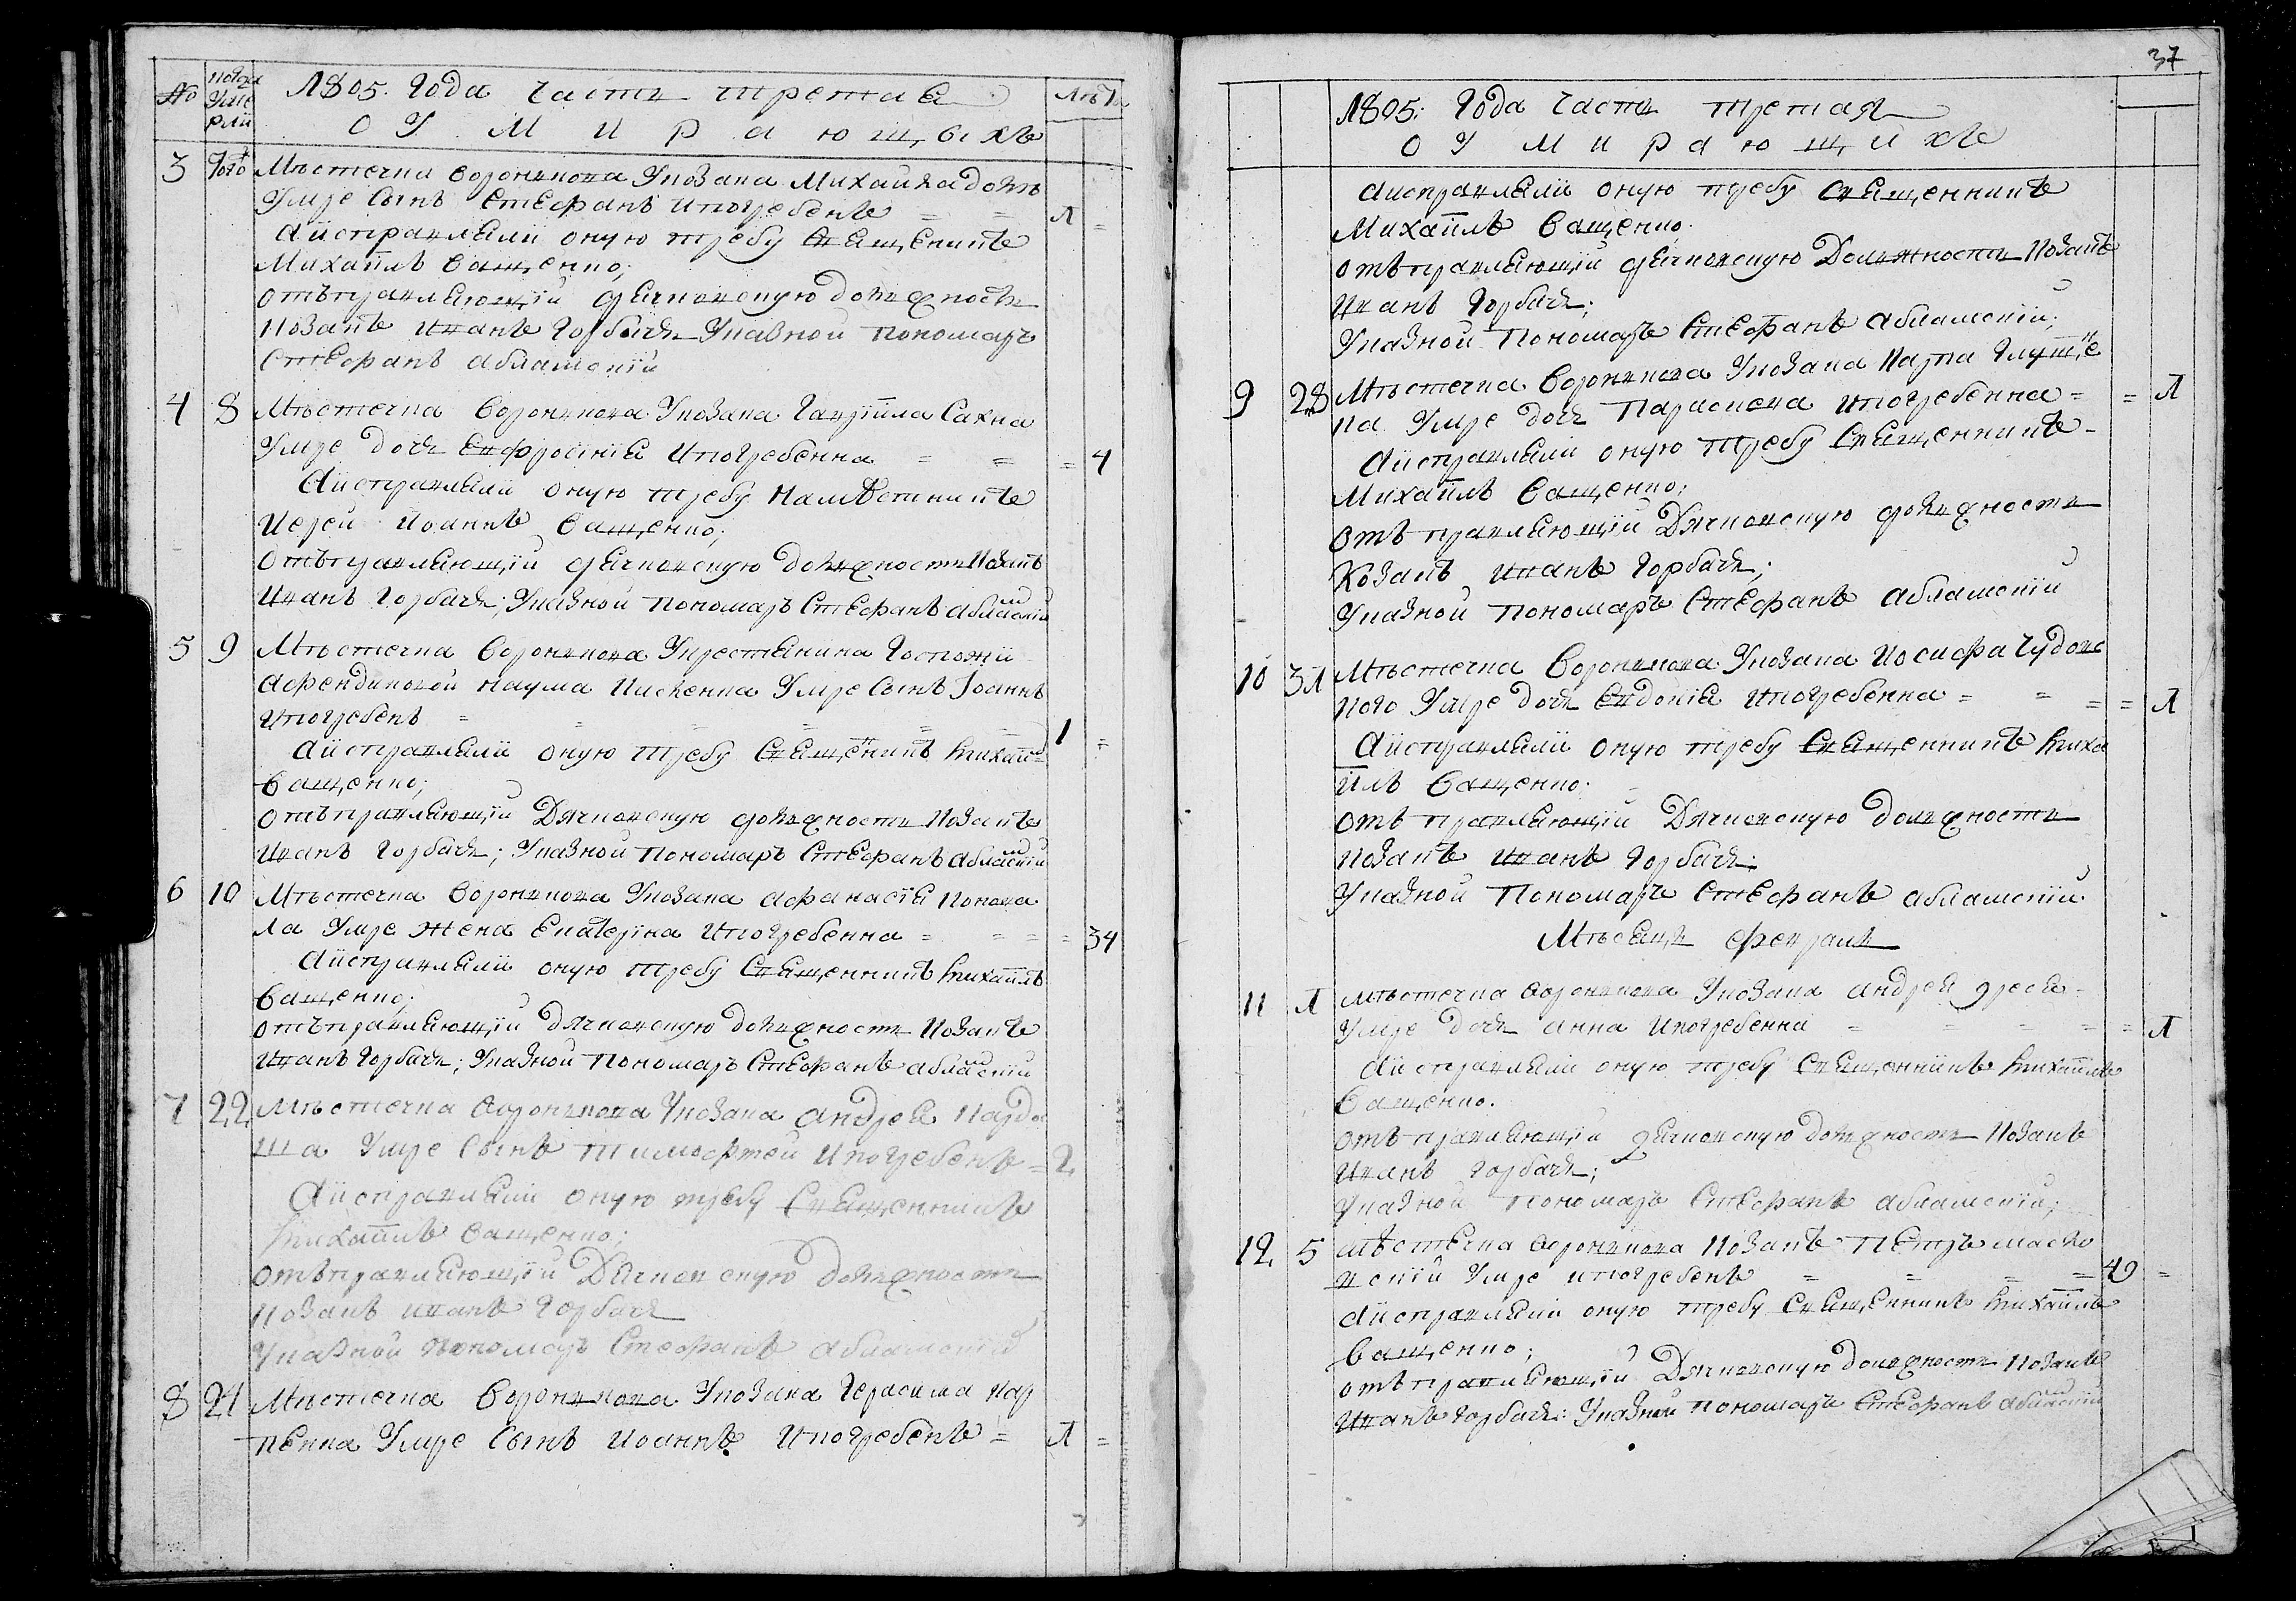 № 1805. года часть третая Лѣта
О У М И Р А Ю Щ Ы ХЪ
3 того Мѣстечка Воронкова Уковака Михаила
Умре сынъ Стефанъ ипогребенъ = = 1 =
Аисправляли оную требу Священникъ
Михаилъ Ващенко;
отъправляющій дячковскую должность
козакъ Иванъ Горбачь Указной пономарь
Стефанъ Абламскій
4 8 Мѣстечка Воронкова Уковака Гавріила Сахна
Умре дочь Евфросинія ипогребенна = = = 4
Аисправляли оную требу Намѣстникъ
Иерей Иоаннъ Ващенко;
отъправляющій дячковскую должность козакъ
Иванъ Горбачь; Указной пономарь Стефанъ Абламскій
5 9 Мѣстечка Воронкова Укрестянина Госпожи
Афендиковой Наума Умре сынъ Іоаннъ
ипогребенъ = = = = = = 1 =
Аисправляли оную требу Священникъ Михаилъ
Ващенко;
отъправляющій Дячковскую должность козакъ
Иванъ Горбачь; Указной пономарь Стефанъ Абламскій
6 10 Мѣстечка Воронкова Уковака Афанасія Конова
ла Умре жена Екатерина ипогребенна = = = = 34
Аисправляли оную требу Священникъ Михаилъ
Ващенко;
отъправляющій дячковскую должность козакъ
Иванъ Горбачь; Указной пономарь Стефанъ Абламскій
7 22 Мѣстечка Воронкова Уковака Андрея Кардо
ша Умре сынъ Тимофтей ипогребенъ = 2
Аисправляли оную требу Священникъ
Михаилъ Ващенко;
отъправляющій Дячковскую должность
козакъ Иванъ Горбачь
Указной пономарь Стефанъ Абламскій
8 24 Мѣстечка Воронкова Уковака Герасима Кар
пенка Умре сынъ Иоаннъ ипогребенъ = 1 =
37
1805: года часть третая
О У М И Р А Ю Щ И ХЪ
Аисправляли оную требу Священникъ
Михаилъ Ващенко.
отъправляющій дячковскую Должность козакъ
Иванъ Горбачь;
Указной пономарь Стефанъ Абламскій;
9 28 Мѣстечка Воронкова Уковака Карпа Глущен
ка Умре дочь Параскева ипогребенна = = 1
Аисправляли оную требу Священникъ
Михаилъ Ващенко;
отъправляющій Дячковскую должность
Козакъ Иванъ Горбачь;
Указной пономарь Стефанъ Абламскій
10 31 Мѣстечка Воронкова Уковака Иосифа Чудовс
кого Умре дочь Евдокія ипогребенна = = = = 1
Аисправляли оную требу Священникъ Миха
илъ Ващенко.
отъправляющій Дячковскую должность
козакъ Иванъ Горбачь:
Указной Пономарь Стефанъ Абламскій.
Мѣсяць Февраль
11 1 Мѣстечка Воронкова Уковака Андрея
Умре дочь Анна ипогребенна = = = = = 1
Аисправляли оную требу Священникъ Михаилъ
Ващенко.
отъправляющій дячковскую должность козакъ
Иванъ Горбачь;
Указной пономарь Стефанъ Абламскій;
12 5 Мѣстечка Воронкова Козакъ Петръ Маско
вскій Умре ипогребенъ = = = = 49 =
Аисправляли оную требу Священникъ Михаилъ
Ващенко;
отъправляющій Дячковскую должность козакъ
Иванъ Горбачь: Указной пономарь Стефанъ Абламскій